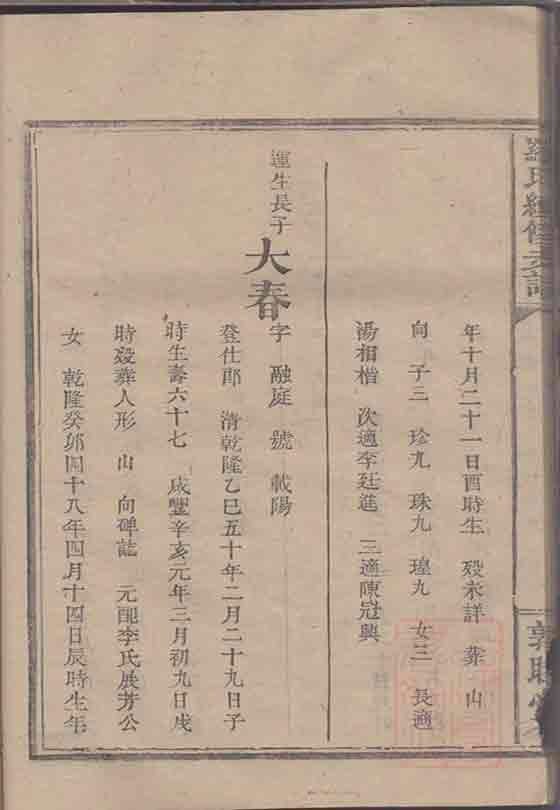 氏續修支譜
年十月二十一日酉時生 歿未詳 葬 山
向 子三 珍九 珠九 瑝九 女三 長適
湯相楷 次適李廷進 三適陳冠興
運生長子 大春 字 融庭 號 載陽
登仕郎 清乾隆乙巳五十年二月二十九日子
時生壽六十七 咸豐辛亥元年三月初九日戌
時歿葬人形 山 向碑誌 元配李氏展芳公
女 乾隆癸卯四十八年四月十四日辰時生年